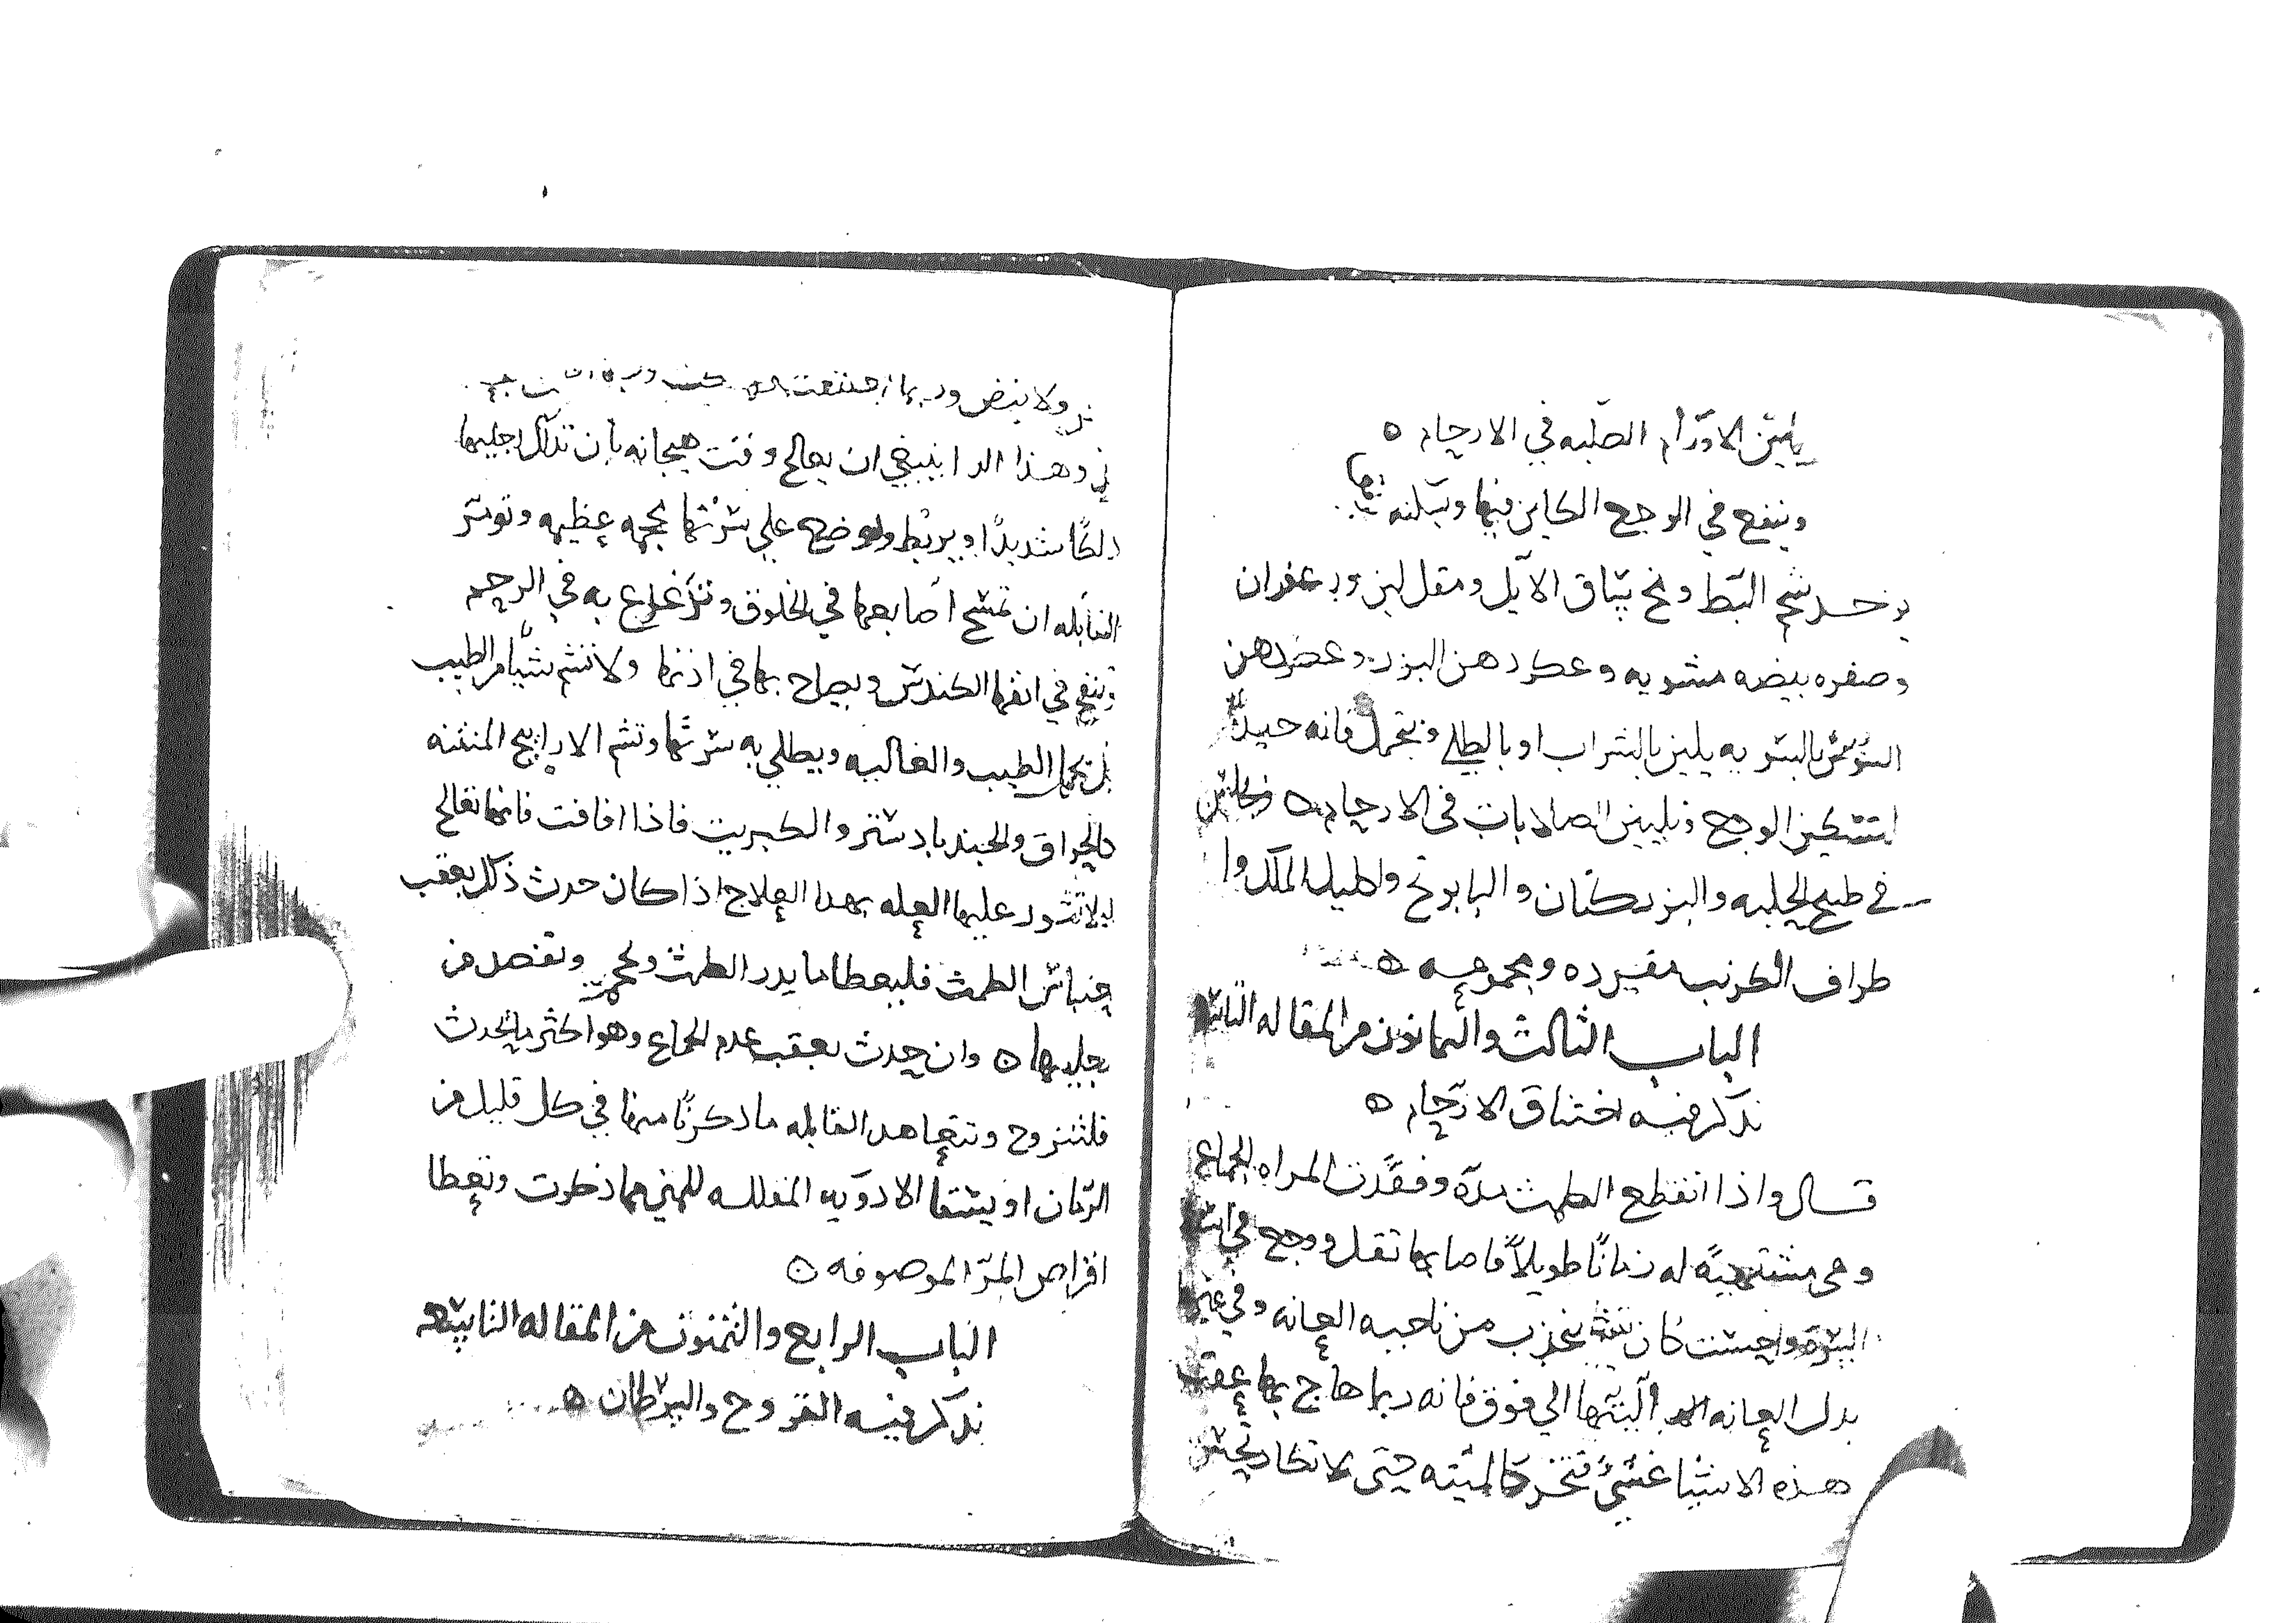 يلين الاورام الصلبه في الارحام ه
وينفع في الوجع الكاين فيها ويسكنه
يوخد شحم البط ومخ ساق الايل ومقل لين وزعفران
وصفره بيضه مشويه وعكر دهن البزر وعكر دهن
السوسن بالسويه يلين بالشراب او بالطلي وتحمل فانه جيد
لتسكين الوجع وتليين الصلابات في الارحام ه وتجلس
في طبيخ الحلبه والبزر كتان والبابونج واكليل الملك وا
طراف الكرنب مفرده ومجموعه ه
الباب الثالث والثمانون من المقاله الثانيه
نذكر فيه اختناق الارحام ه
قال واذا انقطع الطمث مده وفقدت المراه الجماع
وهي مشتهيه له زمانا طويلا فاصابها ثقل ووجع في
السره واحست كان ينجذب من ناحيه العانه وفي غير
بدل العانه البتها الي فوق فانه ربما هاج بها عقب
هذه الاشيا غشي فتخر كالميته حتي لا تكاد تحس
ولا ينبض وربما اختنقت
وهذا الدا ينبغي ان يعالج وقت هيجانه بان تدلك رجليها
دلكا شديدا ويربط ويوضع علي سرتها محجمه عظيمه وتومر
القابله ان تمسح اصابعها في الخلوق وتدغدغ به في الرحم
وينفخ في انفها الكندس ويصاح بها في اذنها ولا تشم شيا من الطيب
بل تحمل الطيب والغاليه ويطلي به سرتها وتشم الاراييح المنتنه
كالحراق والجندبادستر والكبريت فاذا افاقت فانها تعالج
ليلا تثور عليها العله بهدا العلاج اذا كان حدث ذلك بعقب
احتباس الطمث فليعطا ما يدر الطمث وتحجم وتفصد من
رجليها ه وان حدث بعقب عدم الجماع وهو اكثر ما يحدث
فلتتزوج وتتعاهد القابله ما دكرنا منها في كل قليل من
الزمان او يسقا الادويه المقلله للمني مما ذكرت وتعطا
اقراص المر الموصوفه ه
الباب الرابع والثمنون من المقاله الثانيه
نذكر فيه القروح والسرطان ه